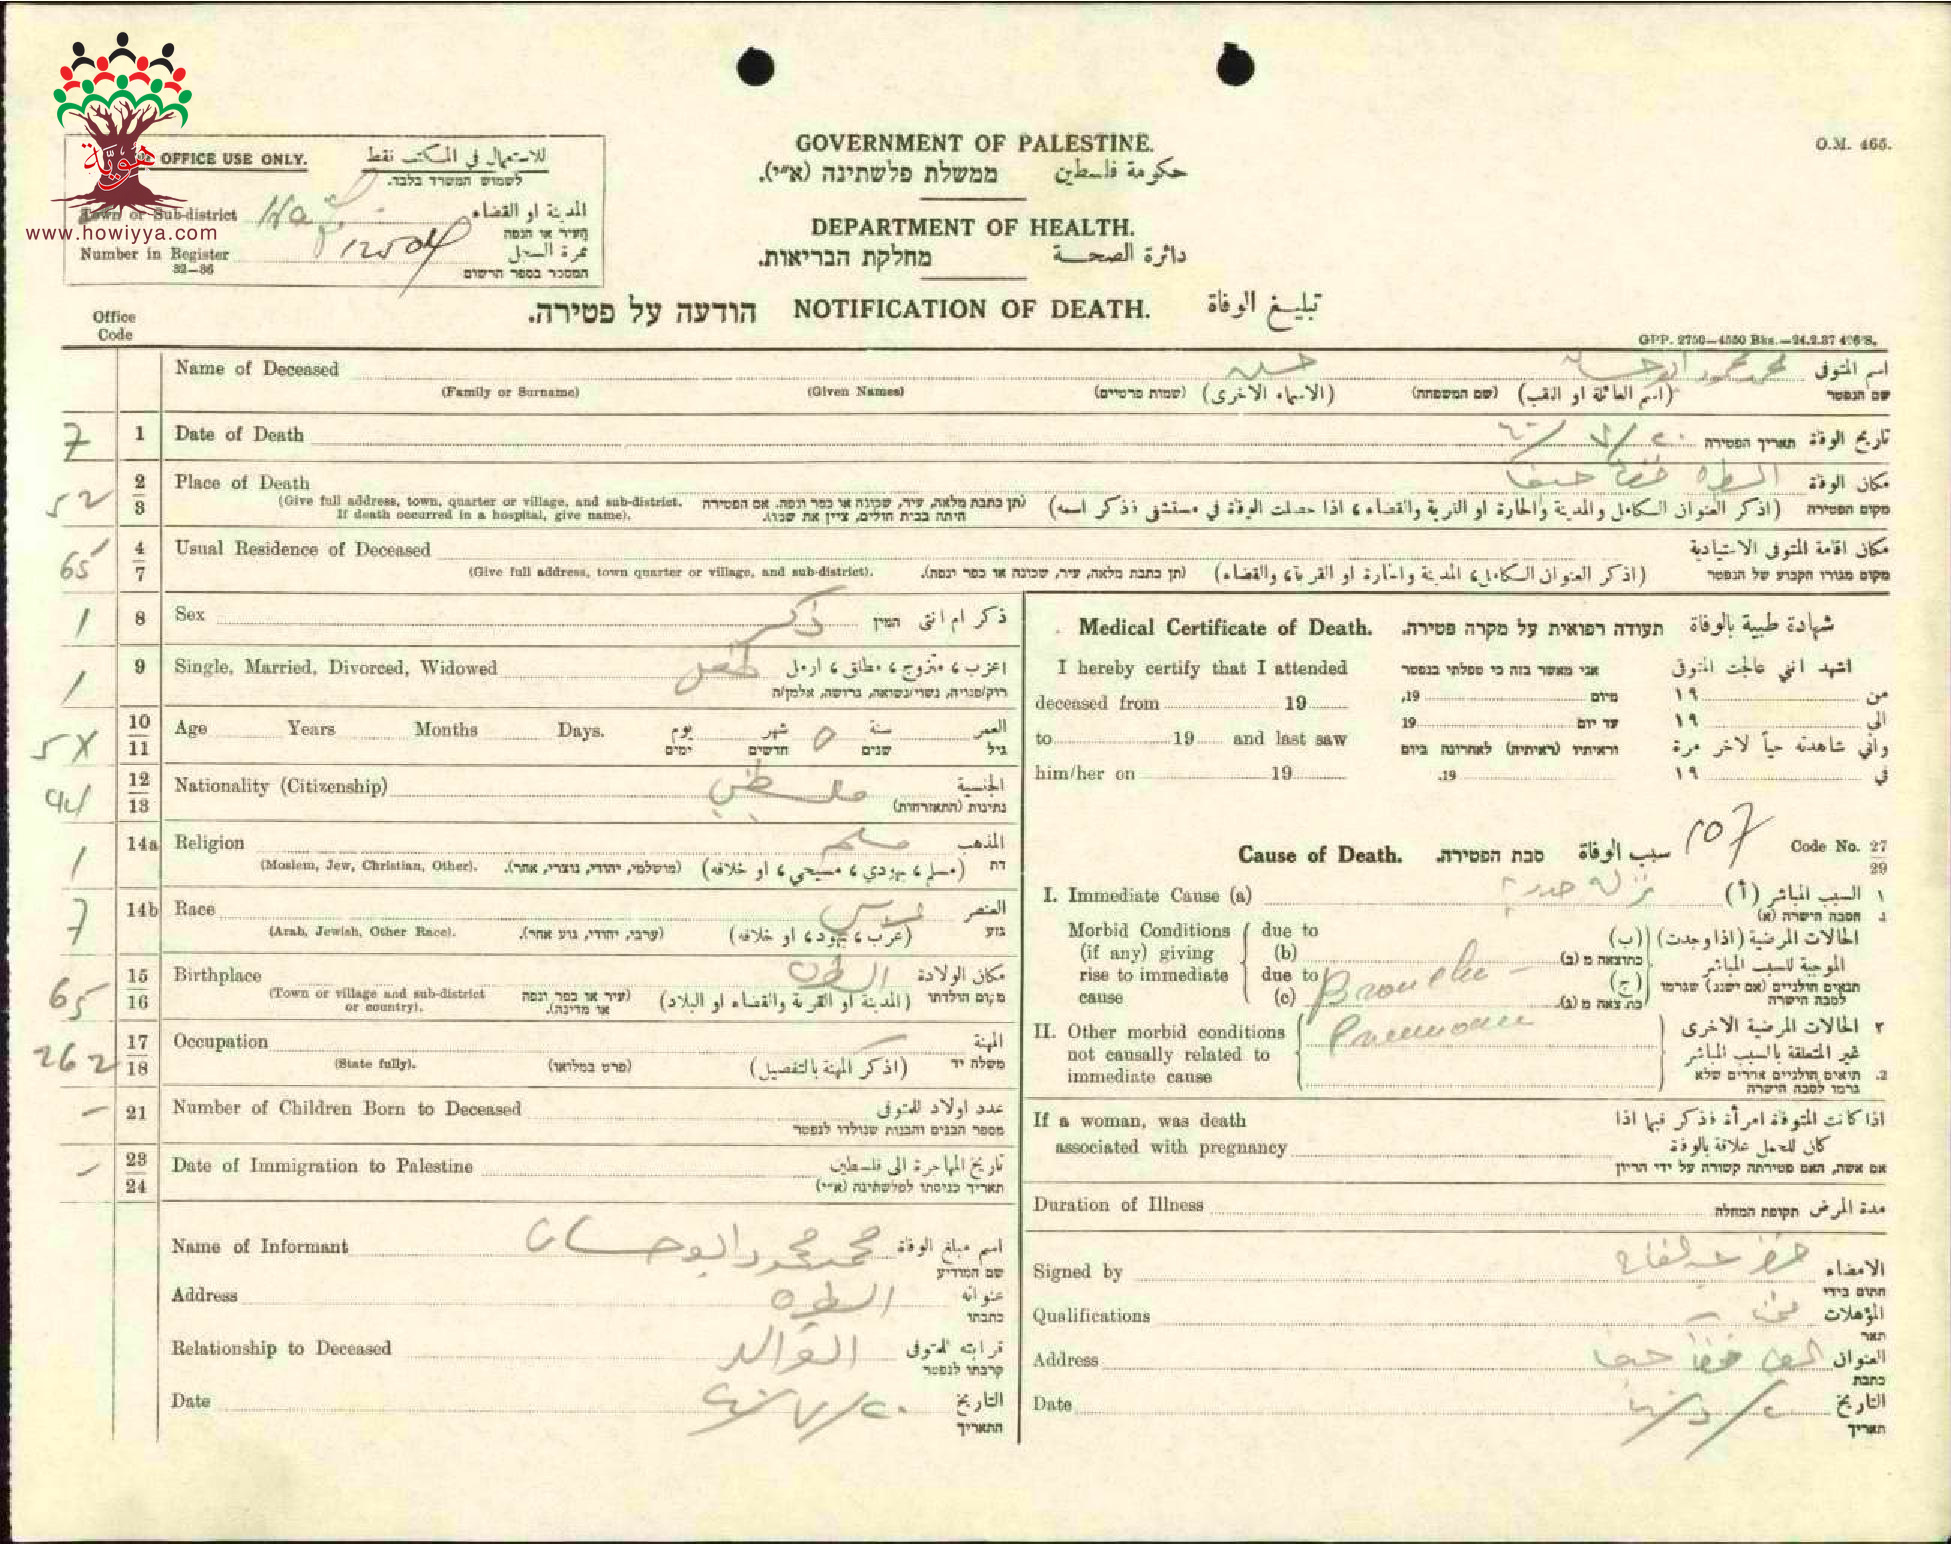 هوية
www.howiyya.com
OFFICE USE ONLY. للاستعمال في المكتب فقط
לשמוש המשרד בלבד.
Town or Sub-district المدينة او القضاء
העיר או הנפה
Number in Register 12504 نمرة السجل
32—36 המספר בספר הרשום
GOVERNMENT OF PALESTINE.
ממשלת פלשתינה (א״י). حكومة فلسطين
DEPARTMENT OF HEALTH.
מחלקת הבריאות. دائرة الصحة
O.M. 465.
הודעה על פטירה. NOTIFICATION OF DEATH. تبليغ الوفاة
GPP. 2750—4550 Bks.—24.2.37 406/S.
Office
Code
Name of Deceased حسين محمد محمود ابو حسان اسم المتوفى
(Family or Surname) (Given Names) (שמות פרטיים) (الاسماء الاخرى) (שם המשפחה) (اسم العائلة او اللقب) שם הנפטר
7 1 Date of Death ٢٠/٧/٤٠ תאריך הפטירה تاريخ الوفاة
52 2 3 Place of Death الطيره قضا حيفا مكان الوفاة
(Give full address, town, quarter or village, and sub-district. If death occurred in a hospital, give name).
(תן כתבת מלאה, עיר, שכונה או כפר ונפה. אם הפטירה היתה בבית חולים, ציין את שמו).
(اذكر العنوان الكامل والمدينة والحارة او القرية والقضاء، اذا حصلت الوفاة في مستشفى فذكر اسمه) מקום הפטירה
65 4 7 Usual Residence of Deceased مكان اقامة المتوفى الاعتيادية
(Give full address, town quarter or village, and sub-district). (תן כתבת מלאה, עיר, שכונה או כפר ונפה). (اذكر العنوان الكامل، المدينة والحارة او القرية، والقضاء) מקום מגורו הקבוע של הנפטר
1 8 Sex ذكر המין ذكر ام انثى
1 9 Single, Married, Divorced, Widowed طفل اعزب، متزوج، مطلق، ارمل
רוק/פנויה, נשוי/נשואה, גרושה, אלמן/ה
5X 10 11 Age Years Months Days. يوم شهر ٥ سنة العمر
ימים חדשים שנים גיל
94 12 13 Nationality (Citizenship) فلسطيني الجنسية
נתינות (התאזרחות)
1 14a Religion مسلم المذهب
(Moslem, Jew, Christian, Other). (מושלמי, יהודי, נוצרי, אחר). (مسلم، يهودي، مسيحي، او خلافه) דת
7 14b Race العنصر
(Arab, Jewish, Other Race). (ערבי, יהודי, גזע אחר). (عرب، يهود، او خلافه) גזע
65 15 16 Birthplace الطيره مكان الولادة
(Town or village and sub-district or country). (עיר או כפר ונפה או מדינה). (المدينة او القرية والقضاء او البلاد) מקום הולדתו
262 17 18 Occupation المهنة
(State fully). (פרט במלואו) (اذكر المهنة بالتفصيل) משלח יד
— 21 Number of Children Born to Deceased عدد اولاد المتوفى
מספר הבנים והבנות שנולדו לנפטר
— 23 24 Date of Immigration to Palestine تاريخ المهاجرة الى فلسطين
תאריך כניסתו לפלשתינה (א״י)
Name of Informant محمد محمود ابو حسان اسم مبلغ الوفاة
שם המודיע
Address الطيره عنوانه
כתבתו
Relationship to Deceased الوالد قرابته للمتوفى
קרבתו לנפטר
Date ٢٠/٧/٤٠ التاريخ
התאריך
Medical Certificate of Death. תעודה רפואית על מקרה פטירה. شهادة طبية بالوفاة
I hereby certify that I attended אני מאשר בזה כי טפלתי בנפטר اشهد انني عالجت المتوفى
deceased from 19 19, מיום ١٩ من
19 עד יום ١٩ الى
to 19 and last saw וראיתיו (ראיתיה) לאחרונה ביום واني شاهدته حياً لاخر مرة
him/her on 19 19. ١٩ في
Cause of Death. סבת הפטירה. سبب الوفاة 107 Code No. 27 29
I. Immediate Cause (a) نزله صدريه السبب المباشر (أ) ١
הסבה הישרה (א) .1
Morbid Conditions (if any) giving rise to immediate cause
due to (b) due to (c)
Broncho-
Pneumonia
الحالات المرضية (اذا وجدت) (ب)
כתוצאה מ (ב) الموجبة للسبب المباشر
(ج) תנאים חולניים (אם ישנם) שגרמו
כתוצאה מ (ג). לסבה הישרה
II. Other morbid conditions not causally related to immediate cause
٢ الحالات المرضية الاخرى
غير المتعلقة بالسبب المباشر
2. תנאים חולניים אחרים שלא
גרמו לסבה הישרה
If a woman, was death اذا كانت المتوفاة امرأة فذكر فيما اذا
associated with pregnancy كان للحمل علاقة بالوفاة
אם אשה, האם פטירתה קשורה על ידי הריון
Duration of Illness תקופת המחלה مدة المرض
Signed by الامضاء
חתום בידי
Qualifications المؤهلات
תאר
Address قضا حيفا العنوان
כתבת
Date التاريخ
תאריך